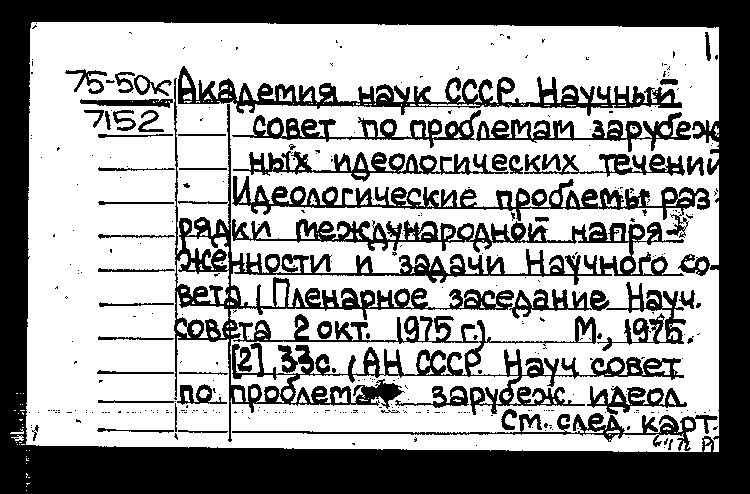 1.
75-50к Академия наук СССР. Научный
7152 совет по проблемам зарубеж
ных идеологических течений
Идеологические проблемы раз-
рядки международной напря-
женности и задачи Научного со-
вета. (Пленарное заседание Науч.
совета 2 окт. 1975 г.). М., 1975.
[2], 33с. (АН СССР. Науч совет
по проблемам зарубеж. идеол.
См. след. карт.